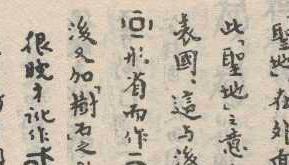 聖地」在外
此「聖地」之意
表國:這与後
形省而作
後又加「樹石之
很晚才訛作